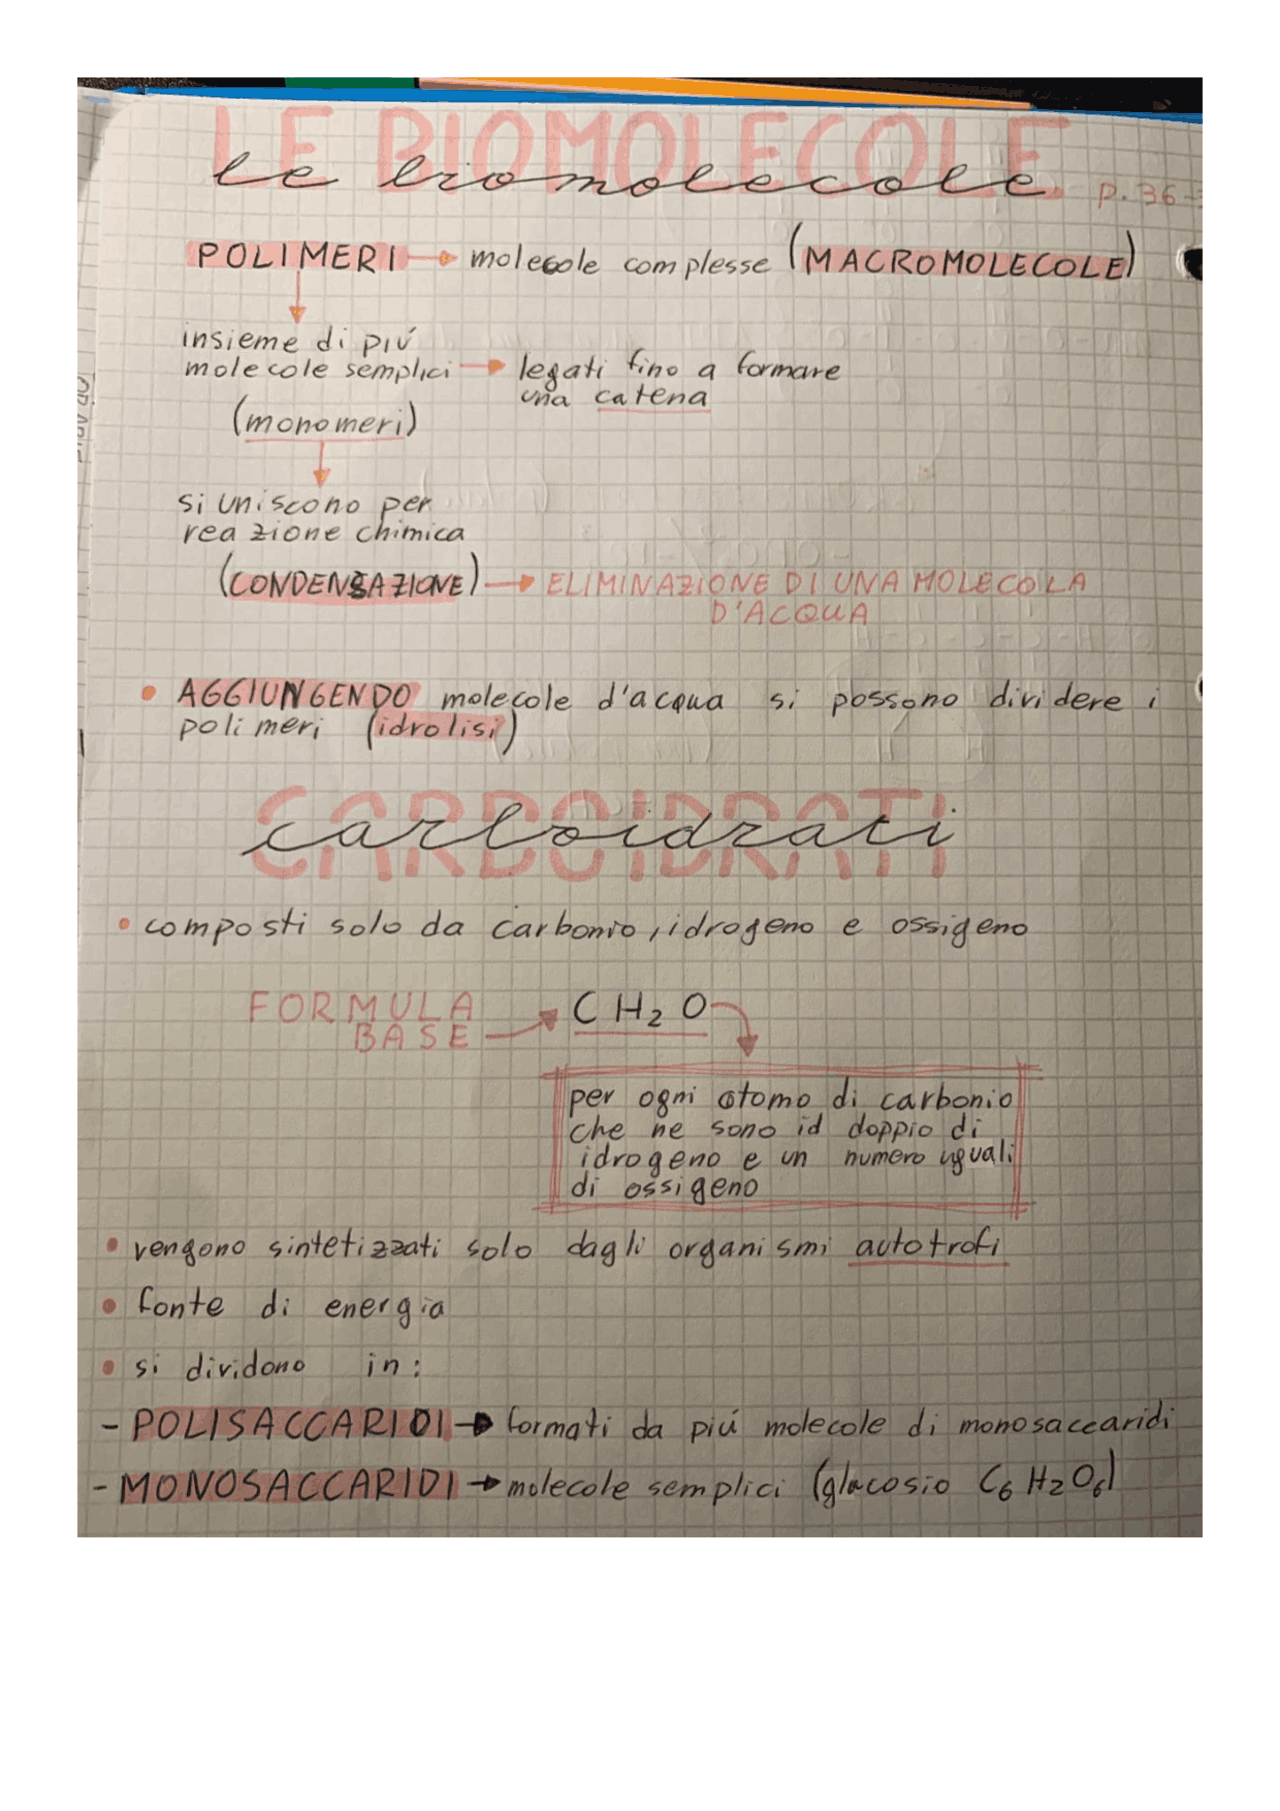 LE BIOMOLECOLE
le biomolecole p. 36-
POLIMERI → molecole complesse (MACROMOLECOLE)
insieme di piú
molecole semplici → legati fino a formare
una catena
(monomeri)
si uniscono per
reazione chimica
(CONDENSAZIONE) → ELIMINAZIONE DI UNA MOLECOLA
D'ACQUA
• AGGIUNGENDO molecole d'acqua si possono dividere i
polimeri (idrolisi)
CARBOIDRATI
carboidrati
• composti solo da carbonio, idrogeno e ossigeno
FORMULA
BASE → CH₂O
per ogni atomo di carbonio
che ne sono id doppio di
idrogeno e un numero uguali
di ossigeno
• vengono sintetizzati solo dagli organismi autotrofi
• fonte di energia
• si dividono in:
- POLISACCARIDI → formati da piú molecole di monosaccaridi
- MONOSACCARIDI → molecole semplici (glucosio C₆H₂O₆)